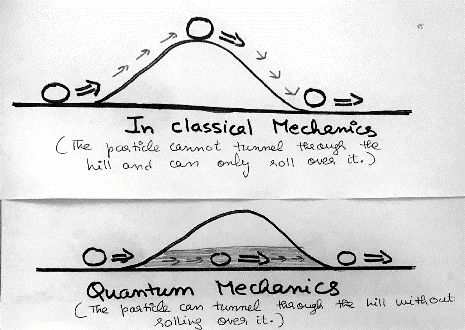 In classical Mechanics
(The particle cannot tunnel through the
hill and can only roll over it.)
Quantum Mechanics
(The particle can tunnel through the hill without
rolling over it.)